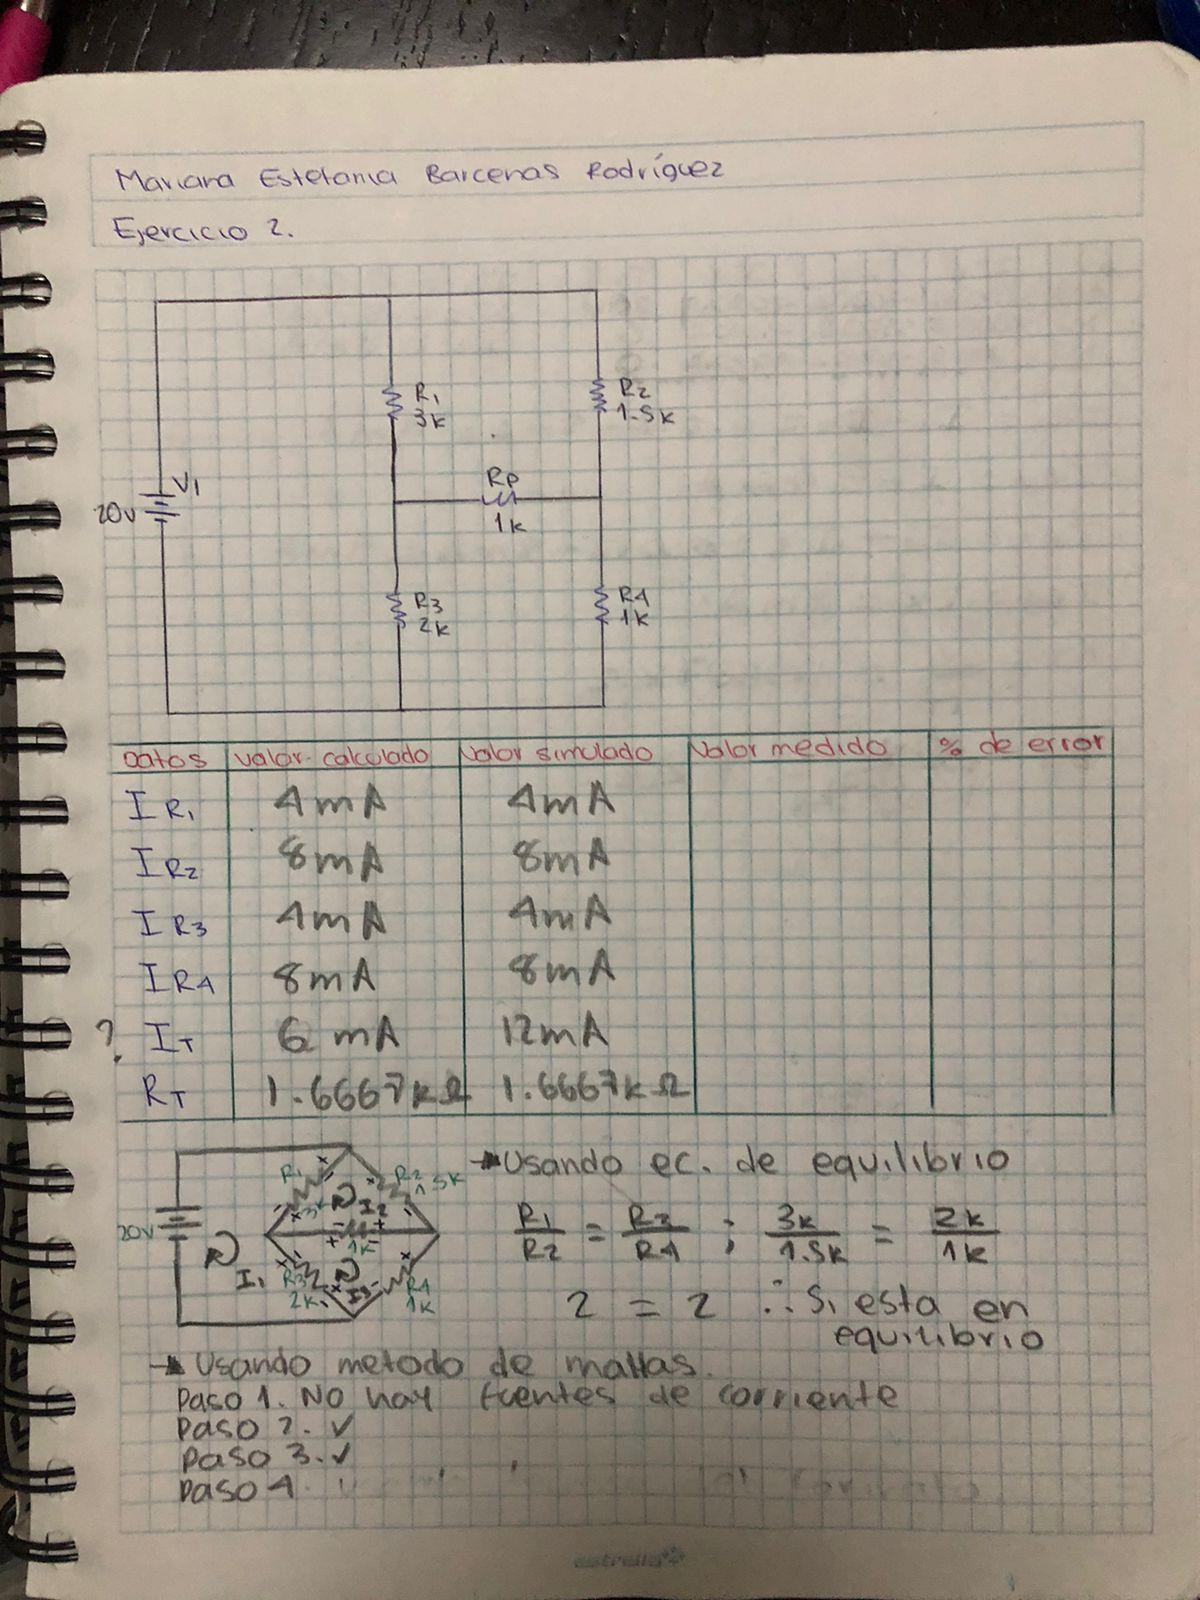 Mariana Estefania Barcenas Rodríguez
Ejercicio 2.
R1
3k
R2
1.5k
V1
20v
Rp
1k
R3
2k
R4
1k
Datos valor calculado valor simulado valor medido % de error
I R1 4mA 4mA
I R2 8mA 8mA
I R3 4mA 4mA
I R4 8mA 8mA
? IT 6 mA 12mA
RT 1.6667kΩ 1.6667kΩ
→Usando ec. de equilibrio
R1/R2 = R3/R4 ; 3k/1.5k = 2k/1k
2 = 2 ∴ Si esta en
equilibrio
20v
R1
3k
R2
1.5k
I2
1k
I1
R3
2k
I3
R4
1k
→ Usando metodo de mallas.
Paso 1. No hay fuentes de corriente
Paso 2. ✓
Paso 3. ✓
Paso 4.
estrella